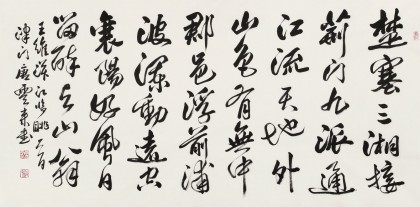 楚塞三湘接
荆门九派通
江流天地外
山色有无中
郡邑浮前浦
波澜动远空
襄阳好风日
留醉与山翁
王维汉江临眺